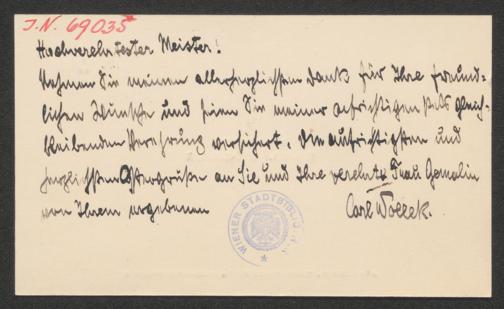 I.N. 69035
Hochverehrtester Meister!
Nehmen Sie meinen allerherzlichsten Dank für Ihre freund-
lichen Wünsche und seien Sie meiner aufrichtigen stets gleich-
bleibenden Verehrung versichert. Die aufrichtigsten und
herzlichsten Ostergrüße an Sie und Ihre verehrte Frau Gemalin
von Ihrem ergebenen
Carl
WIENER STADTBIBLIO